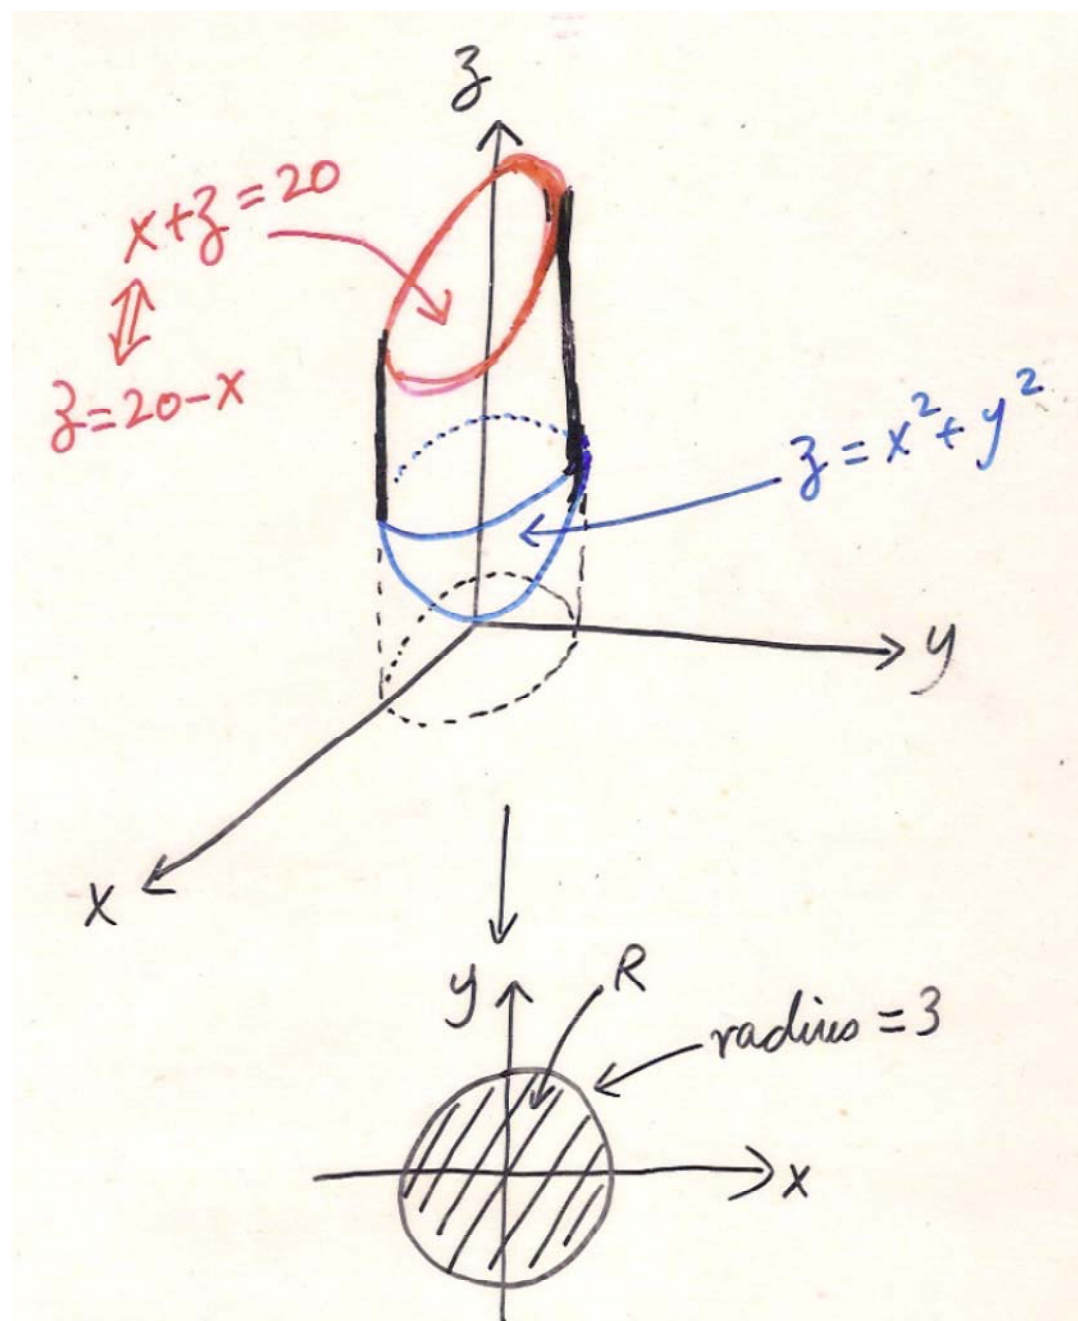 z
x+z=20
⇕
z=20-x
z=x²+y²
y
x
y
R
radius=3
x